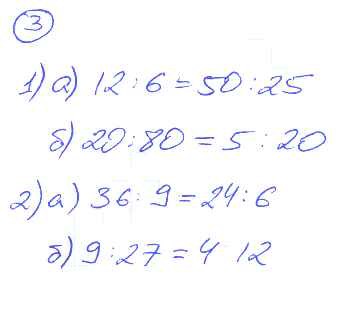 3
1) а) 12 : 6 = 50 : 25
б) 20 : 80 = 5 : 20
2) а) 36 : 9 = 24 : 6
б) 9 : 27 = 4 12